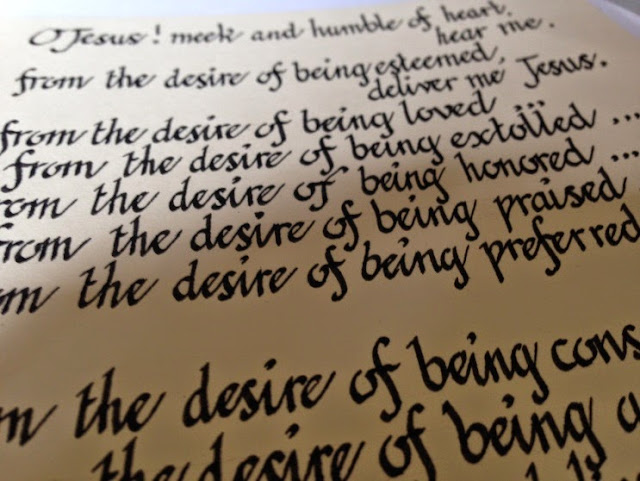 O Jesus! meek and humble of heart,
hear me.
from the desire of being esteemed,
deliver me Jesus.
from the desire of being loved ...
from the desire of being extolled ...
rom the desire of being honored ...
from the desire of being praised
om the desire of being preferred
m the desire of being cons
the desire of being a